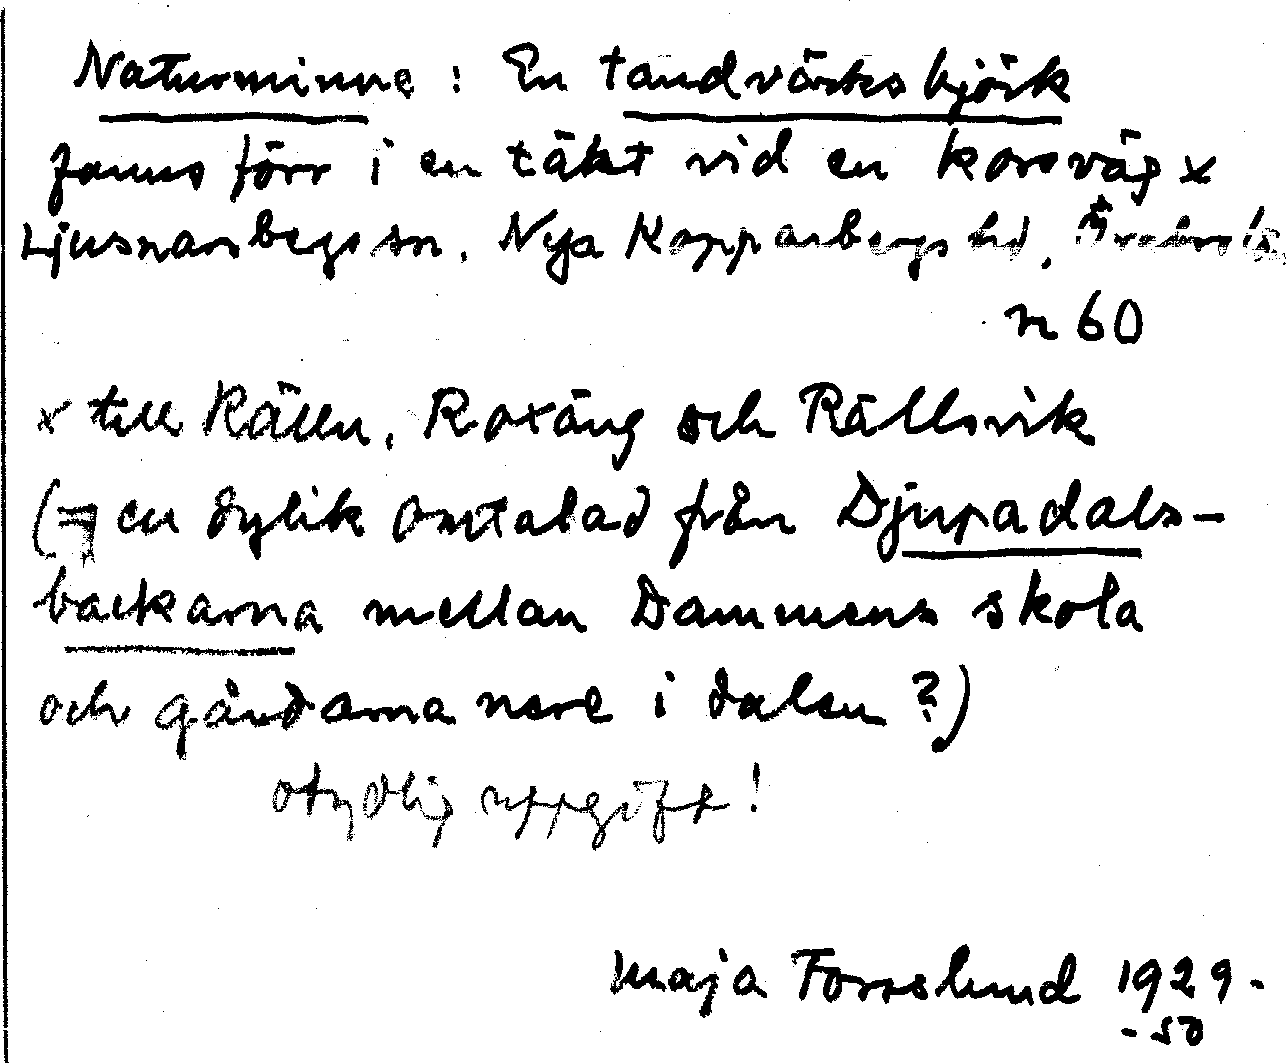 Naturminne: En tandvärksbjörk
fanns förr i en täkt vid en korsväg x
Ljusnarsbergs sn. Nya Kopparbergs hd, Örebro l.
n 60
x till Rällen, Roxäng och Rällsvik
(= en dylik omtalad från Djupadals-
backarna mellan Dammens skola
och gårdarna nere i dalen ?)
otydlig uppgift!
Maja Forsslund 1929-
-50